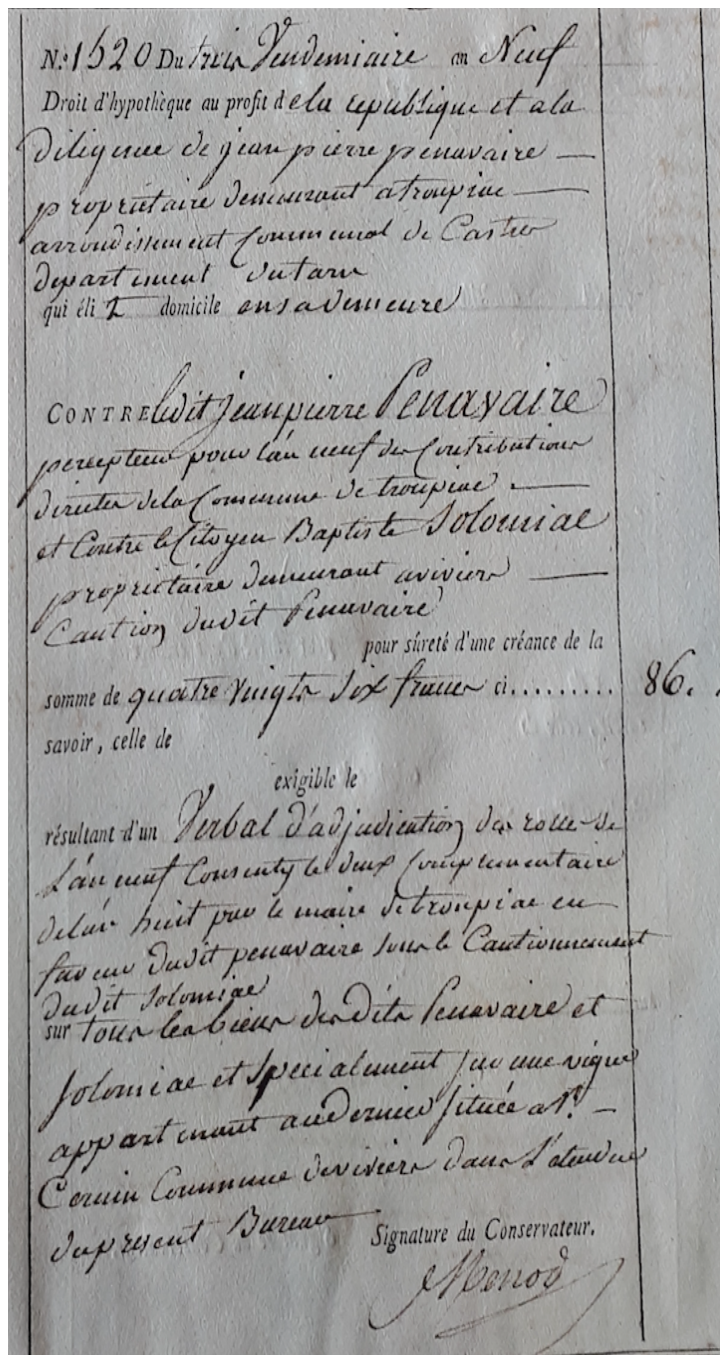 N.o 1520 Du trois Vendemiaire an Neuf
Droit d'hypothèque au profit de la republique et a la
diligence de jean pierre penavaire —
propriétaire demeurant a troupiac —
arrondissement Communal de Castres
departement du tarn
qui éli t domicile en sa demeure
CONTRE ledit jean pierre Penavaire
percepteur pour l'an neuf des Contributions
directes dela Commune de troupiac —
et Contre le Citoyen Baptiste Solomiac
propriétaire demeurant a viviers —
Caution dudit Penavaire
pour sûreté d'une créance de la
somme de quatre vingts six francs ci......... 86.
savoir, celle de
exigible le
résultant d'un Verbal d'adjudication des rolles de
L'an neuf Consenty le deux Complementaire
de l'an huit par le maire de troupiac en
faveur dudit penavaire sous le Cautionnement
dudit Solomiac
sur tous les biens desdits Penavaire et
Solomiac et specialement sur une vigne
appartenant au dernier située a St. —
Cernin Commune de viviers dans L'etendue
du present Bureau
Signature du Conservateur.